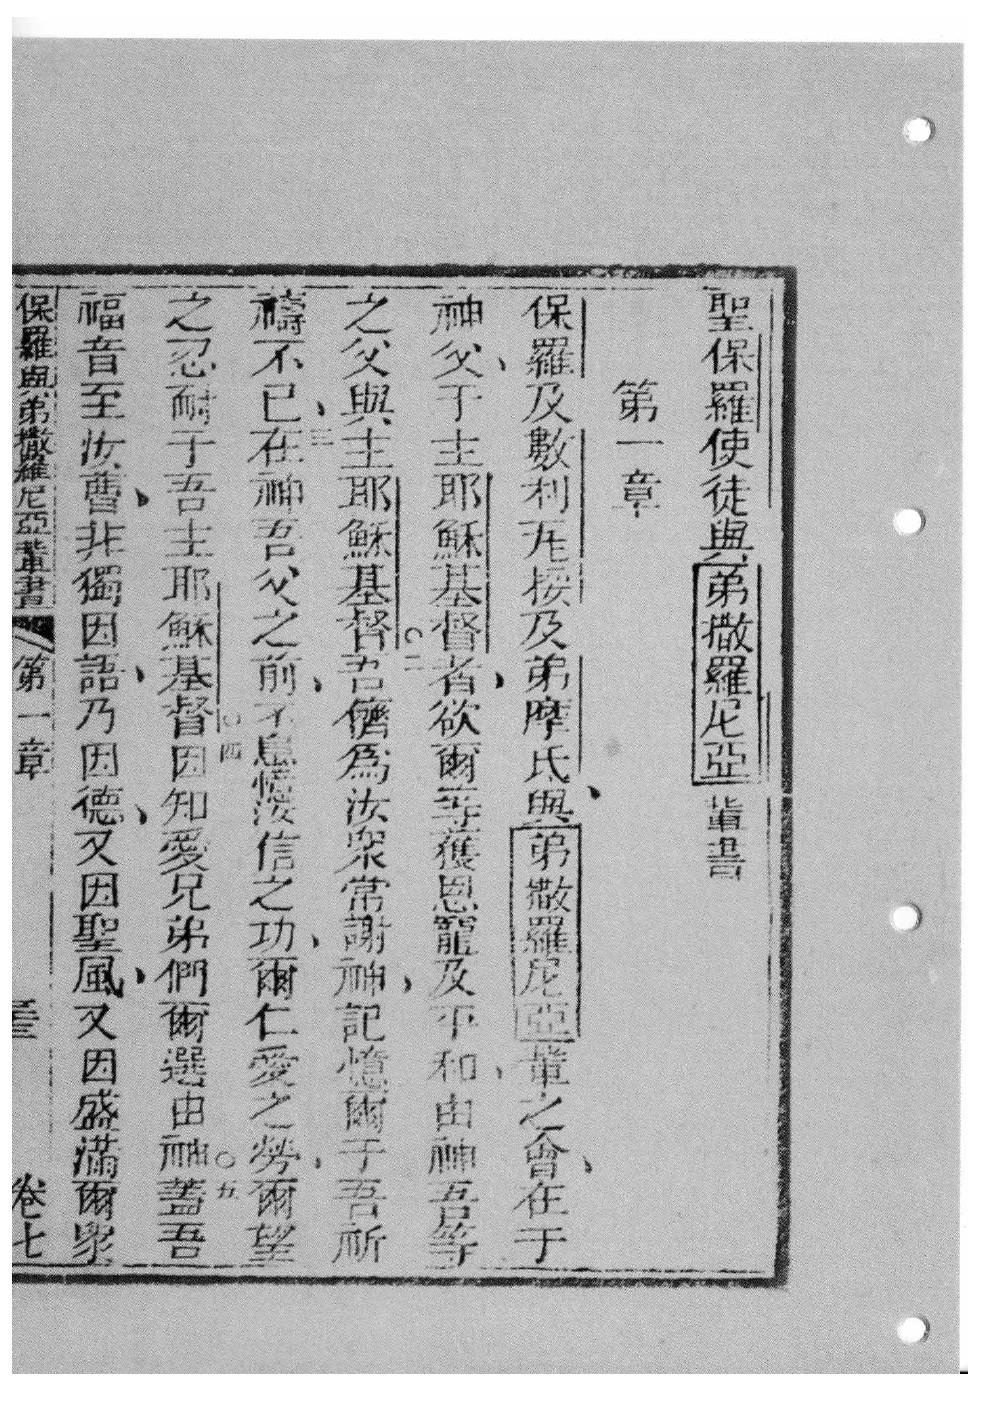 聖保羅使徒與弟撒羅尼亞軰書
第一章
保羅及數利无接及弟摩氐、與弟撒羅尼亞軰之會、在于
神父、于主耶穌基督者、欲爾等獲恩寵及平和、由神吾等
之父與主耶穌基督○二吾儕為汝眾常謝神、記憶爾于吾祈
禱不已、三在神吾父之前、不怠慢汝信之功、爾仁愛之勞、爾望
之忍耐于吾主耶穌基督○四因知愛兄弟們爾選由神○五蓋吾
福音至汝曹、非獨因語、乃因德、又因聖風、又因盛滿爾眾
保羅與弟撒羅尼亞軰書 第一章 卷七